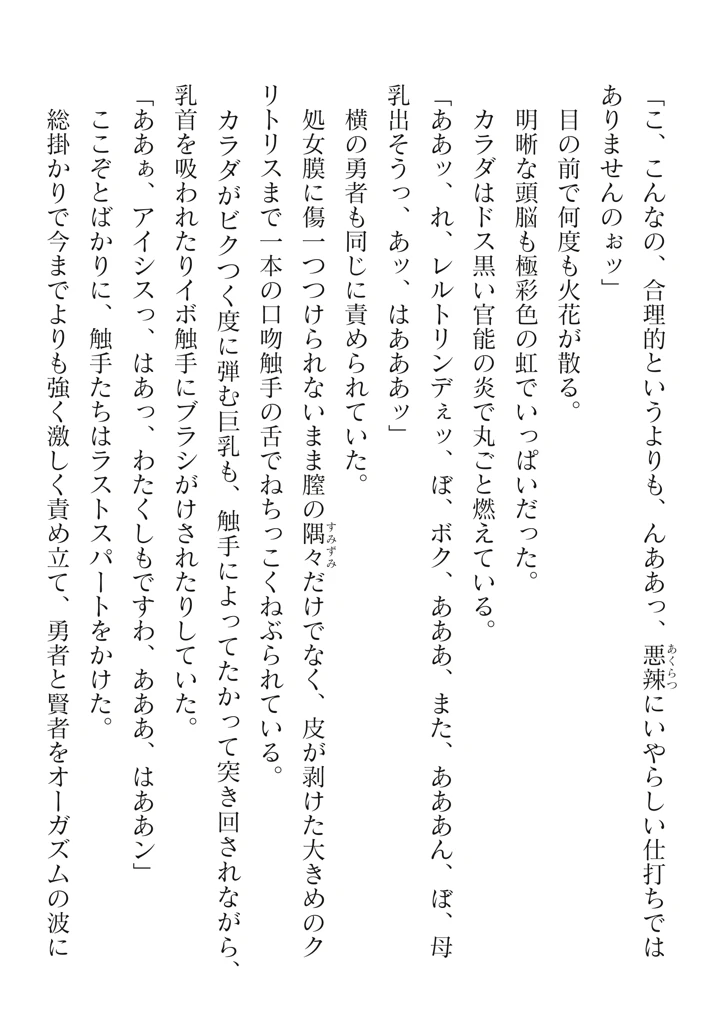 「こ、こんなの、合理的というよりも、んああっ、悪辣にいやらしい仕打ちでは
あくらつ
ありませんのぉッ」
目の前で何度も火花が散る。
明晰な頭脳も極彩色の虹でいっぱいだった。
カラダはドス黒い官能の炎で丸ごと燃えている。
「ああッ、れ、レルトリンデぇッ、ぼ、ボク、あああ、また、あああん、ぼ、母
乳出そうっ、あッ、はあああッ」
横の勇者も同じに責められていた。
処女膜に傷一つつけられないまま膣の隅々だけでなく、皮が剥けた大きめのク
すみずみ
リトリスまで一本の口吻触手の舌でねちっこくねぶられている。
カラダがビクつく度に弾む巨乳も、触手によってたかって突き回されながら、
乳首を吸われたりイボ触手にブラシがけされたりしていた。
「ああぁ、アイシスっ、はあっ、わたくしもですわ、あああ、はああン」
ここぞとばかりに、触手たちはラストスパートをかけた。
総掛かりで今までよりも強く激しく責め立て、勇者と賢者をオーガズムの波に